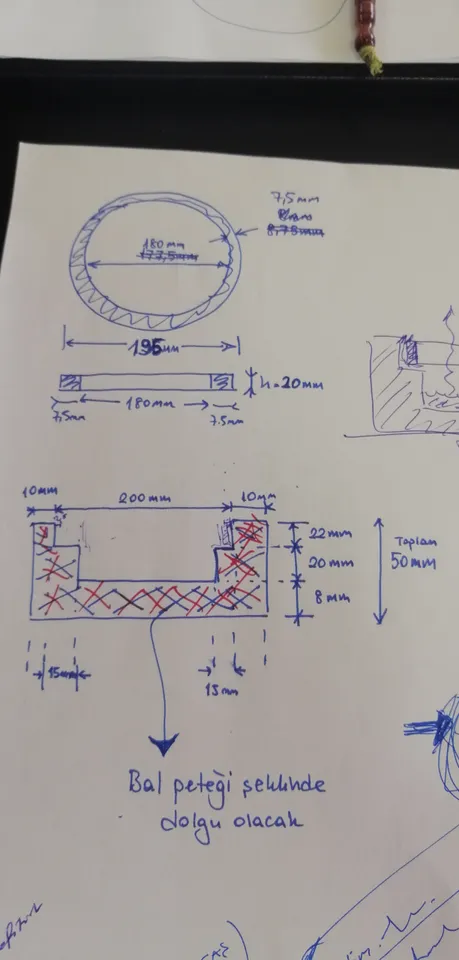 7,5mm
8,75mm
180mm
177,5mm
195mm
h=20mm
7,5mm
180mm
7.5mm
10mm
200mm
10mm
22mm
20mm
8mm
Toplam
50mm
15mm
15mm
Bal peteği şeklinde
dolgu olacak